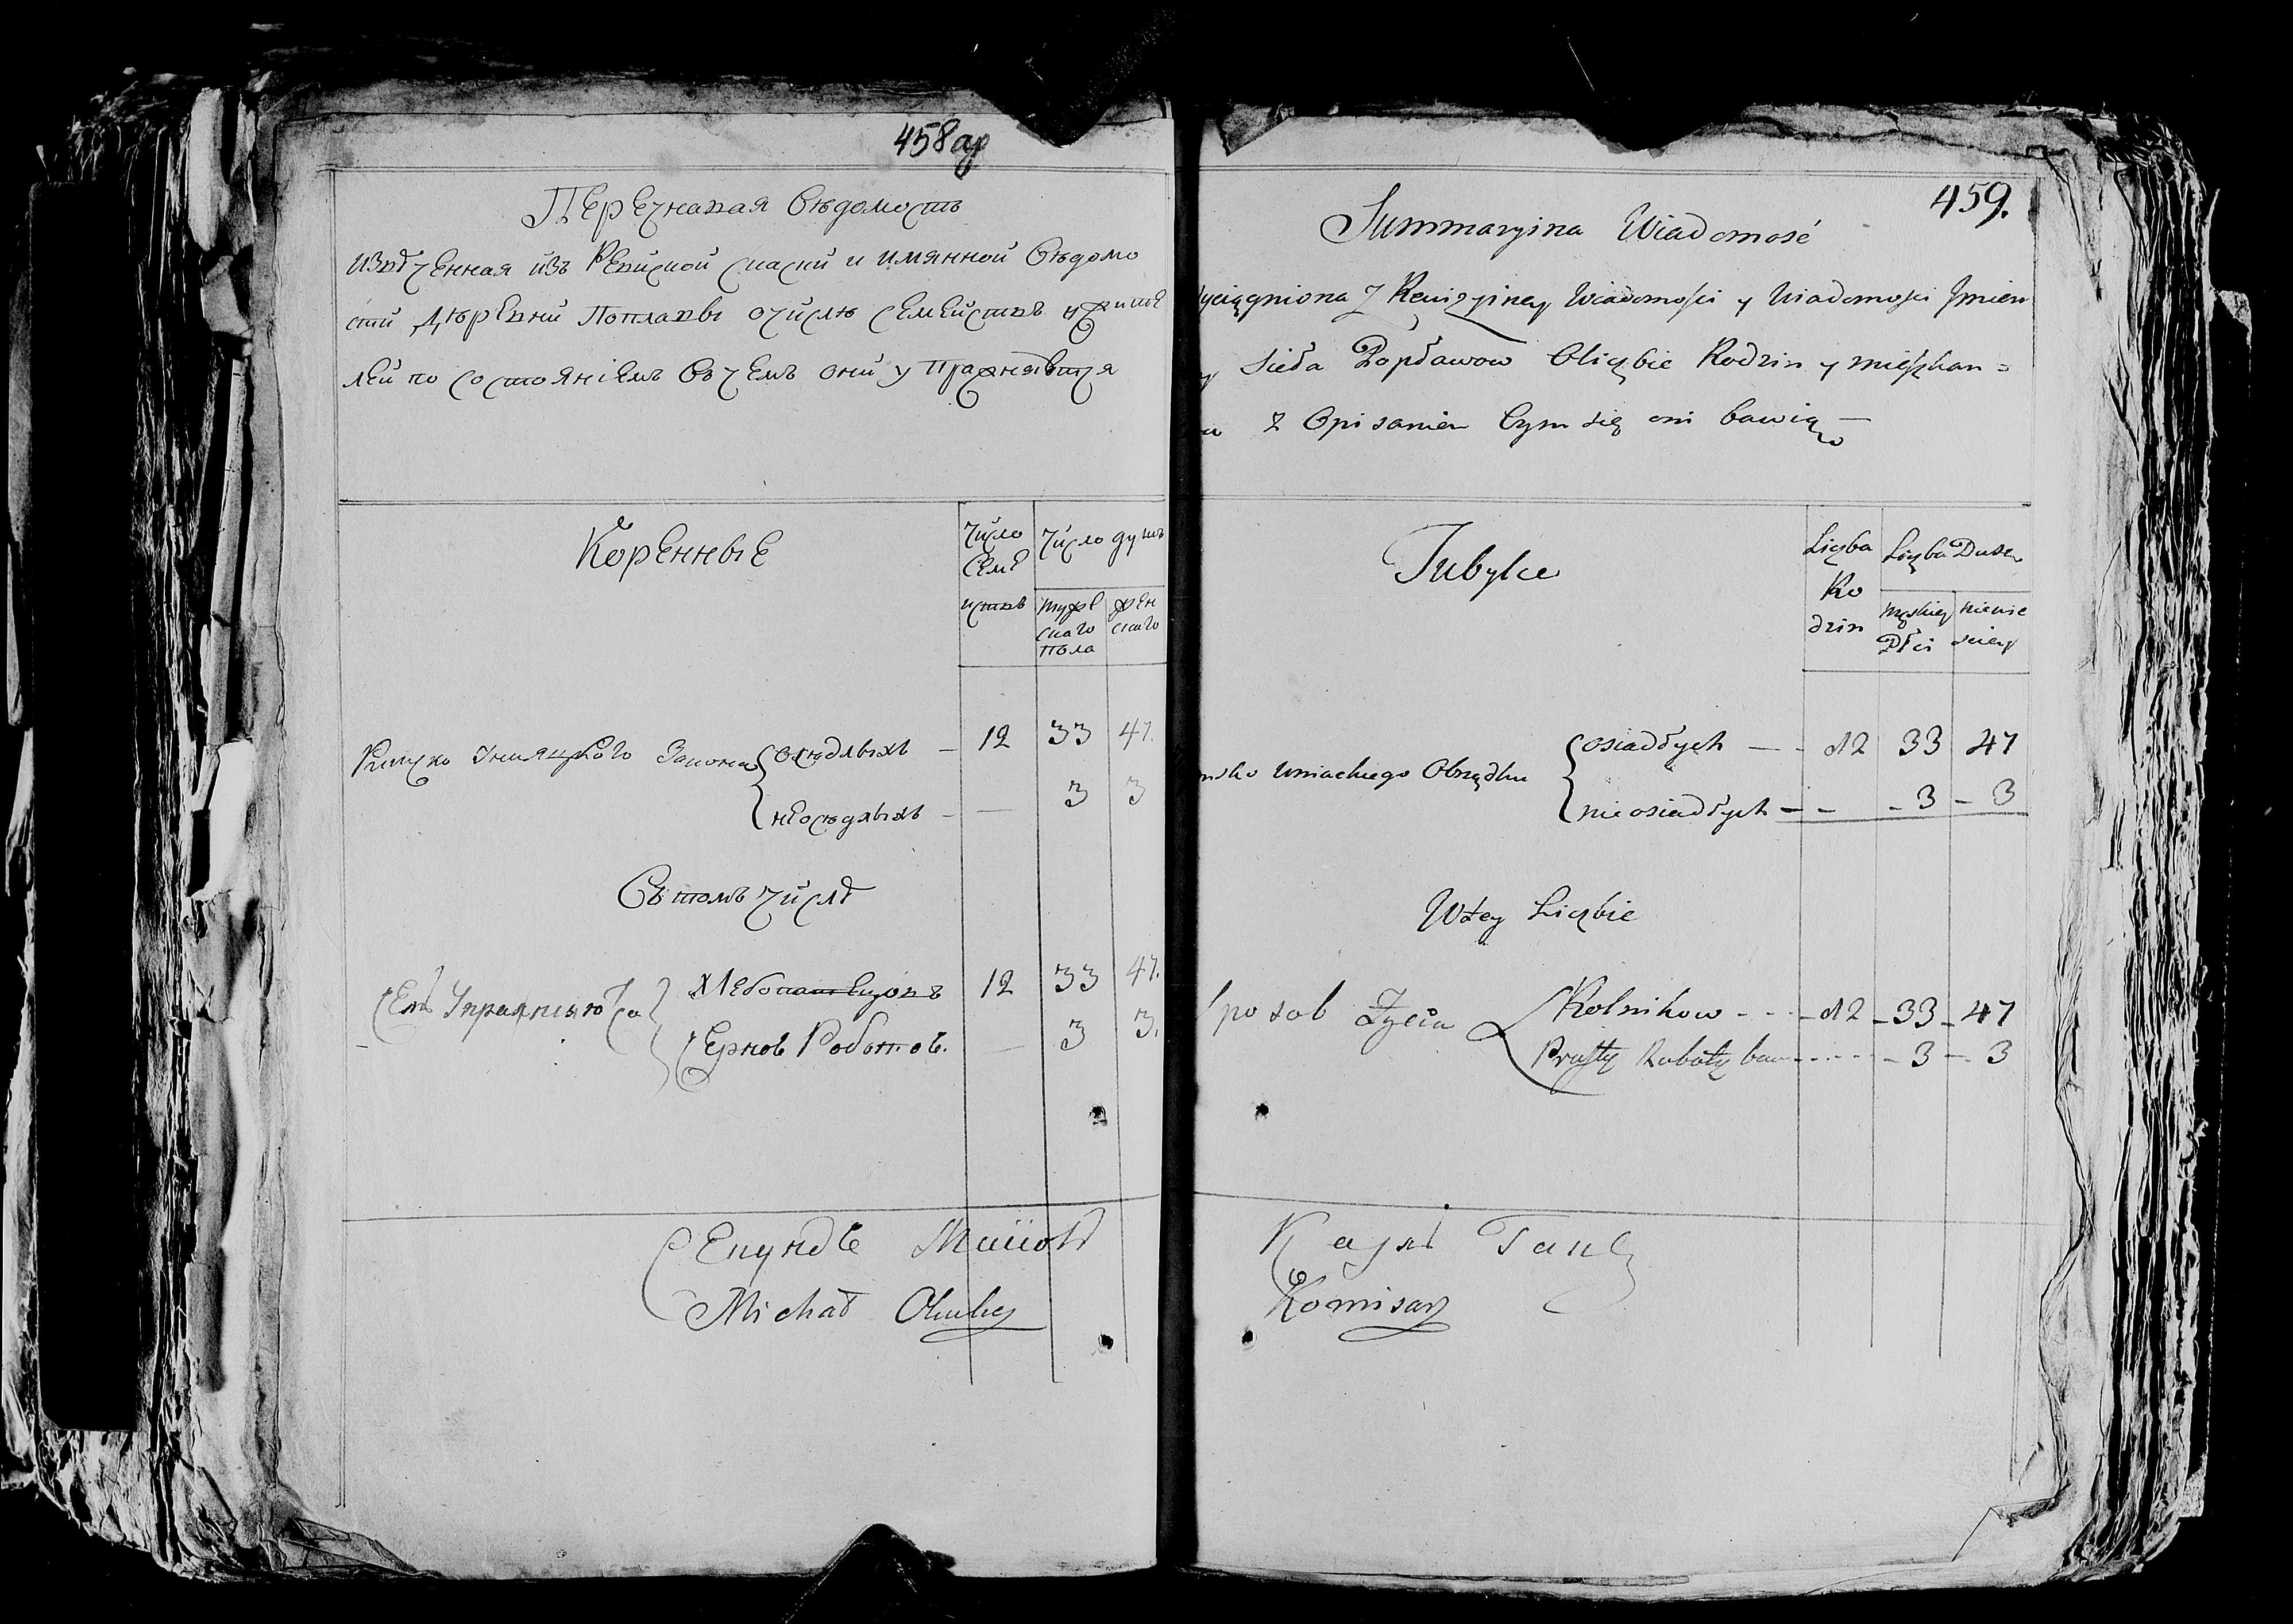 458 ар
Перечневая Ведомость
извлеченная изъ Ревиской скаски и имянной Ведомо
сти Деревни Поплавы очисле семействъ и жите
лей по состояніемъ вчемъ они упражняются
Коренные
Число
Семе
иствъ
Число душъ
мужс
скаго
пола
жен
скаго
Римско Униацкого Закона
оседлыхъ — 12 33 47.
неоседлыхъ — — 3 3
Въ томъ числе
Сем Упражняются
хлебопашецовъ 12 33 47.
Черной Роботой. — 3 3.
Michał
459.
Summaryina Wiadomosć
yciągniona z Rewizyiney Wiadomosci y Wiadomosci Jmien
y Sioła Popławow Oliczbie Rodzin y mieszkan=
w z Opisaniem Czym się oni bawią
Tubylce
Liczba
Ro
dzin
Liczba Dusz
męskiey
Płci
niewie
sciey
msko Uniackiego Obrządku
osiadłych — - 12 33 47
nie osiadłych — - - 3 - 3
Wtey Liczbie
sposob Zycia
Rolnikow - - - 12 - 33 - 47
Prostą Robotą baw - - - - 3 - 3
Komisarz